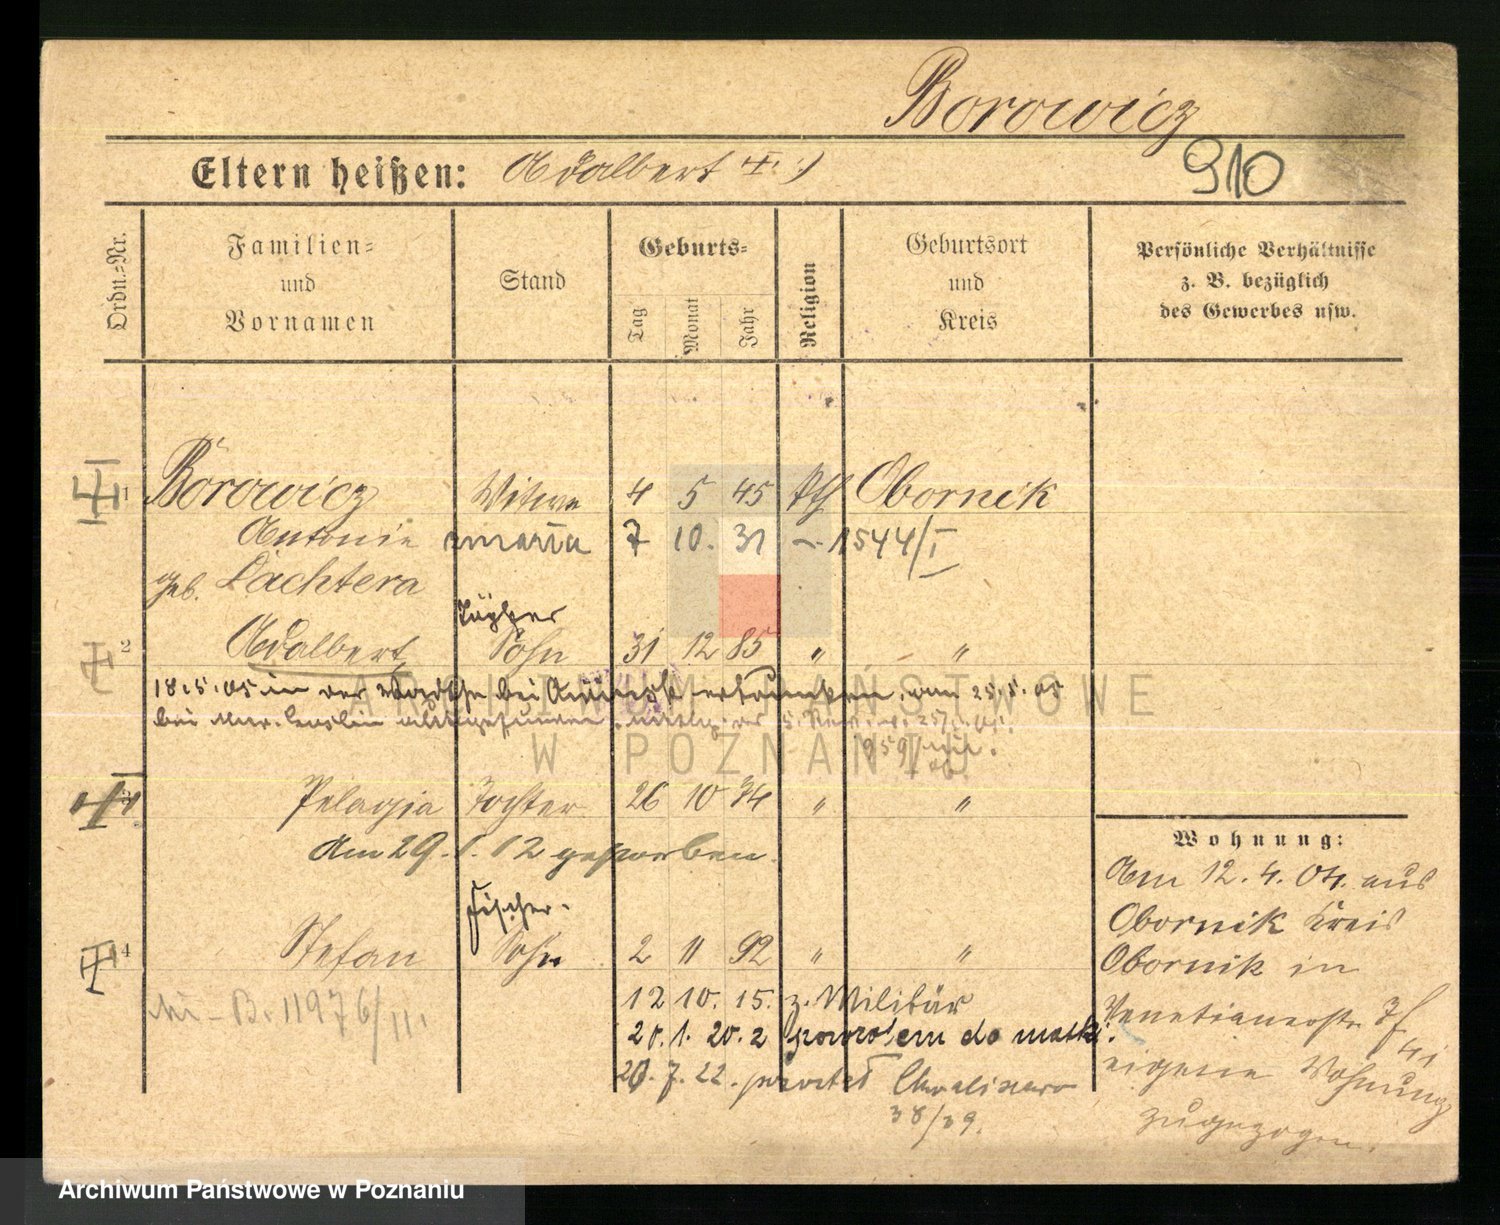 Borowicz
Eltern heißen: Adalbert
910
Ordn.=Nr.
Familien=
und
Vornamen
Stand
Geburts=
Tag
Monat
Jahr
Religion
Geburtsort
und
Kreis
Persönliche Verhältnisse
z. B. bezüglich
des Gewerbes usw.
1 Borowicz Witwe 4 5 45 kth Obornik
Antonie maria 7 10. 31 - 1544/I
geb. Lachtera
2 Adalbert Sohn 31 12 85 " "
18.5.05 in der bei ertrunken, am 25.5.05
bei
3 Pelagia Tochter 26 10 74 " "
Am 29.1.12 gestorben.
Fischer-
4 Stefan Sohn 2 11 92 " "
12 10. 15. z. Militär
B. 11976/III.
20.1.20. z powrotem do matki.
20.7.22. powiat
38/39.
Wohnung:
Am 12.4.04. aus
Obornik Kreis
Obornik in
Venetianerstr. 7f
eigene Wohnung
zugezogen.
ARCHIWUM PAŃSTWOWE
W POZNANIU
Archiwum Państwowe w Poznaniu